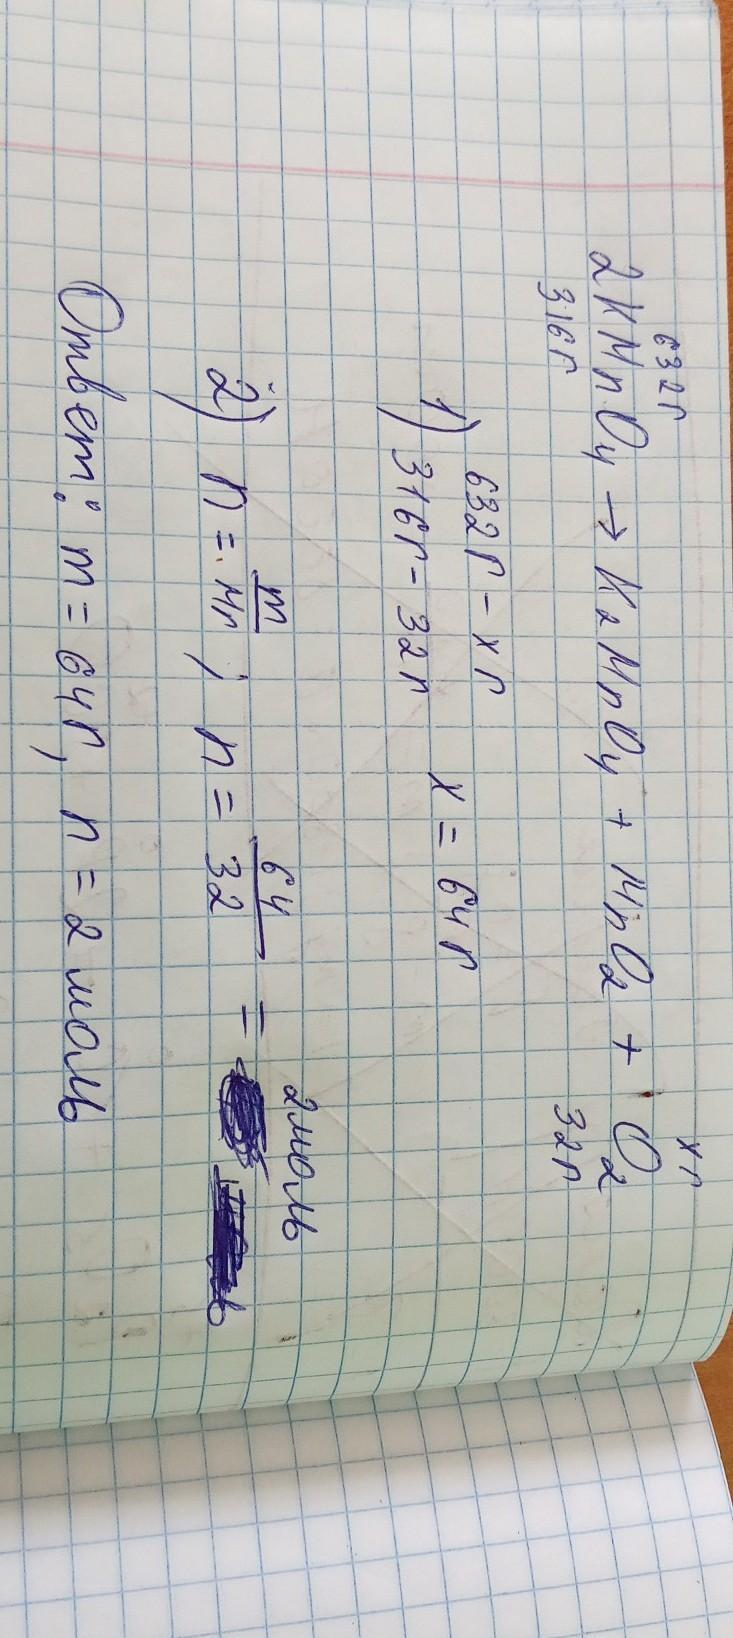 632г xг
2KMnO4 → K2MnO4 + MnO2 + O2
316г 32г
1) 632г - xг
316г - 32г x = 64г
2) n = m/Mr ; n = 64/32 = 2моль
Ответ: m = 64г, n = 2 моль